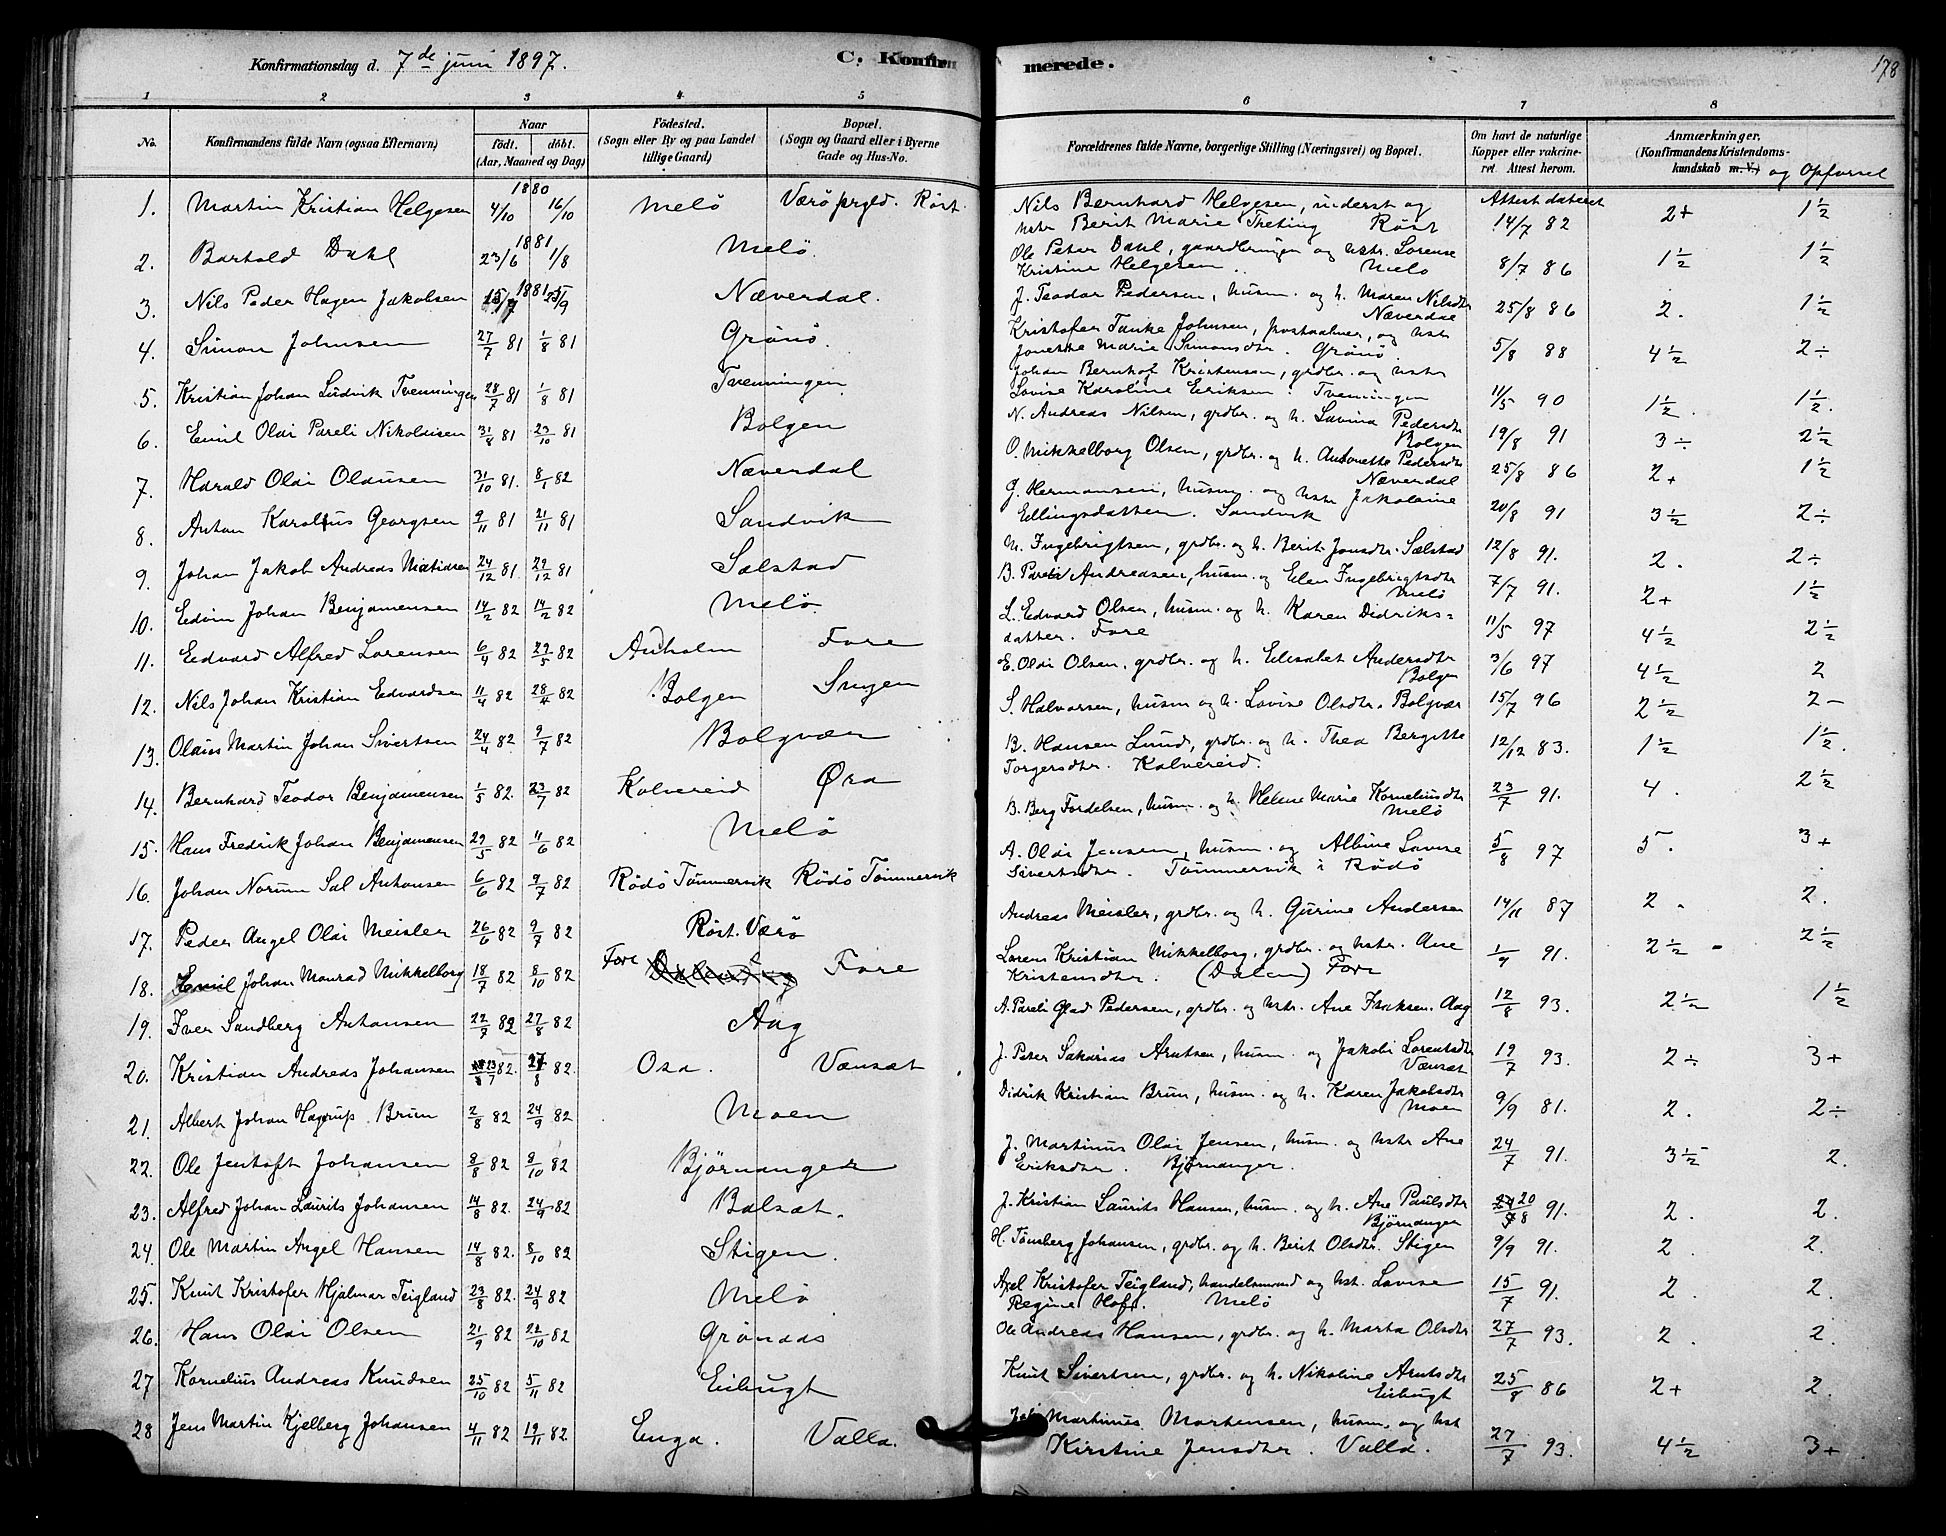 Konfirmationsdag d. 7de juni 1897. C. Konfirmerede. 178
1 2 3 4 5 6 7 8
No. Konfirmandens fulde Navn (ogsaa Efternavn) Naar födt. döbt. (Aar, Maaned og Dag) Födested. (Sogn eller By og paa Landet tillige Gaard) Bopæl. (Sogn og Gaard eller i Byerne Gade og Hus-No. Forældrenes fulde Navne, borgerlige Stilling (Næringsvei) og Bopæl. Om havt de naturlige Kopper eller vakcineret. Attest herom. Anmærkninger. (Konfirmandens Kristendomskundskab m. V.) og Opførsel
1. Martin Kristian Helgesen 1880 4/10 16/10 Melö Værö prgld. Röst. Nils Bernhard Helgesen, inderst og hstr Berit Marie Treting Röst Attest dateret 14/7 82 2+ 1½
2. Bartold Dahl 1881 23/6 1/8 Melö. Ole Peter Dahl, gaardbruger og hstr. Lorense Kristine Helgesen. Melö 8/7 86 1½ 1½
3. Nils Peder Hagen Jakobsen 1881 25/9 Næverdal. J. Teodor Pedersen, husm. og h. Maren Nilsdtr Næverdal 25/8 86 2. 1½
4. Simon Johnsen 27/7 81 1/8 81 Grönö. Kristofer Tanke Johnsen, postaabner, og hstr Jonette Marie Simonsdtr. Grönö. 5/8 88 4½ 2÷
5. Kristian Johan Ludvik Tvenningen 28/7 81 1/8 81 Tvenningen Johan Bernhof Kristensen, grdbr. og hstr Lovise Karoline Eriksen. Tvenningen 11/5 90 1½. 1½.
6. Emil Oldi Pareli Nikolaisen 31/8 81 23/10 81 Bolgen N. Andreas Nilsen, grdbr. og h. Lavina Pedersdtr Bolgen 19/8 91 3÷ 2½
7. Harald Oldi Olausen 31/10 81. 8/1 82 Næverdal O. Mikkelborg Olsen, grdbr. og h. Antonette Pedersdtr Næverdal 25/8 86 2+ 1½
8. Anton Karolius Georgsen 9/11 81 21/11 81 Sandvik G. Hermansen, husm. og hstr Jakobine Ellingsdatter. Sandvik 20/8 91 3½ 2÷
9. Johan Jakob Andreas Matidsen 24/12 81. 29/12 81 Sælstad M. Ingebrigtsen, grdbr. og h. Berit Jonsdtr. Sælstad 12/8 91. 2. 2÷
10. Edvin Johan Benjamensen 14/2 82 14/2 82 Melö. B. Pareli Andreasen, husm. og Elen Ingebrigtsdtr Melö 7/7 91. 2+ 1½
11. Edvard Alfred Lorensen 6/4 82 29/5 82 Anholm Fore L. Edvard Olsen, husm. og h. Karen Didriksdatter. Fore 11/5 97 4½ 2½
12. Nils Johan Kristian Edvardsen 11/4 82 28/4 82 Bolgen E. Oldi Olsen, grdbr. og h. Elisabet Andersdtr Bolgen 3/6 97 4½ 2
13. Olaus Martin Johan Sivertsen 24/4 82 9/7 82 Bolgvær S. Halvorsen, husm og h. Lovise Olsdtr. Bolgvær 15/7 96 2½ 2-
14. Bernhard Teodor Benjamensen 1/5 82. 23/7 82 Kalvereid Øra B. Hansen Lund, grdbr. og h. Thea Bergitte Torgersdtr. Kalvereid. 12/12 83. 1½ 1½.
15. Hans Fredrik Johan Benjamensen 29/5 82 11/6 82 Melö B. Berg Fordelsen, husm. og h. Helene Marie Korneliusdtr Melö 23/7 91. 4. 2½
16. Johan Norum Sal Antonsen 6/6 82 9/7 82 Rödö Tömmervik Rödö Tömmervik A. Oldi Jensen, husm. og Albine Lovise Sivertsdtr. Tömmervik i Rödö 5/8 97 5. 3+
17. Peder Angel Oldi Meisler 26/6 82 9/7 82 Röst. Værö Andreas Meisler, grdbr. og h. Gurine Andersen 14/11 87 2. 2.
18. Emil Johan Monrad Mikkelborg 18/7 82 8/10 82 Fore Fore Lorens Kristian Mikkelborg, grdbr. og hstr. Ane Kristensdtr. (Dalen) Fore 91. 2½ 2½
19. Iver Sandberg Antonsen 22/7 82 27/8 82 Aag A. Pareli Glad Pedersen, grdbr. og hstr. Ane Isaksen. Aag 12/8 93. 2½ 1½
20. Kristian Andreas Johansen 82. 27/8 82. Osa. Vænset J. Peter Sakarias Arntsen, husm. og Jakobi Lorentsdtr Vænset 19/7 93. 2÷ 3+
21. Albert Johan Hagerup Brun 2/8 82 24/9 82 Moen Didrik Kristian Brun, husm. og h. Karen Jakobsdtr Moen 9/9 81. 2. 2÷
22. Ole Jentoft Johansen 8/8 82 8/10 82 Björnanger J. Martinus Oldi Jensen, husm. og hstr Ane Eriksdtr. Björnanger. 24/7 91. 3½ 2.
23. Alfred Johan Laurits Johansen 14/8 82. 24/9 82 Balsæt. J. Kristian Laurits Hansen, husm. og h. Ane Paulsdtr Björnanger 20/8 91. 2. 2.
24. Ole Martin Angel Hansen 14/8 82. 8/10 82 Stigen. H. Tönsberg Johansen, grdbr. og h. Berit Olsdtr. Stigen 9/9 91. 2. 2.
25. Knut Kristofer Hjalmar Teigland 23/8 82. 24/9 82 Melö Axel Kristofer Teigland, handelsmand og hst. Lovise Regine Hoff. Melö 15/7 91. 2. 2.
26. Hans Oldi Olsen 21/9 82 22/10 82 Grönaas Ole Andreas Hansen, grdbr. og h. Marta Olsdtr 27/7 93. 2. 2.
27 Kornelius Andreas Knudsen 25/10 82 5/11 82 Eibugt Knut Sivertsen, grdbr. og h. Nikoline Arntsdtr Eibugt 25/8 86 2+ 2.
28 Jens Martin Kjelberg Johansen 4/11 82 19/11 82. Enga. Valla. Martinus Mortensen, husm. og hst Kirstine Jensdtr. Valla. 27/7 93. 4½ 3+